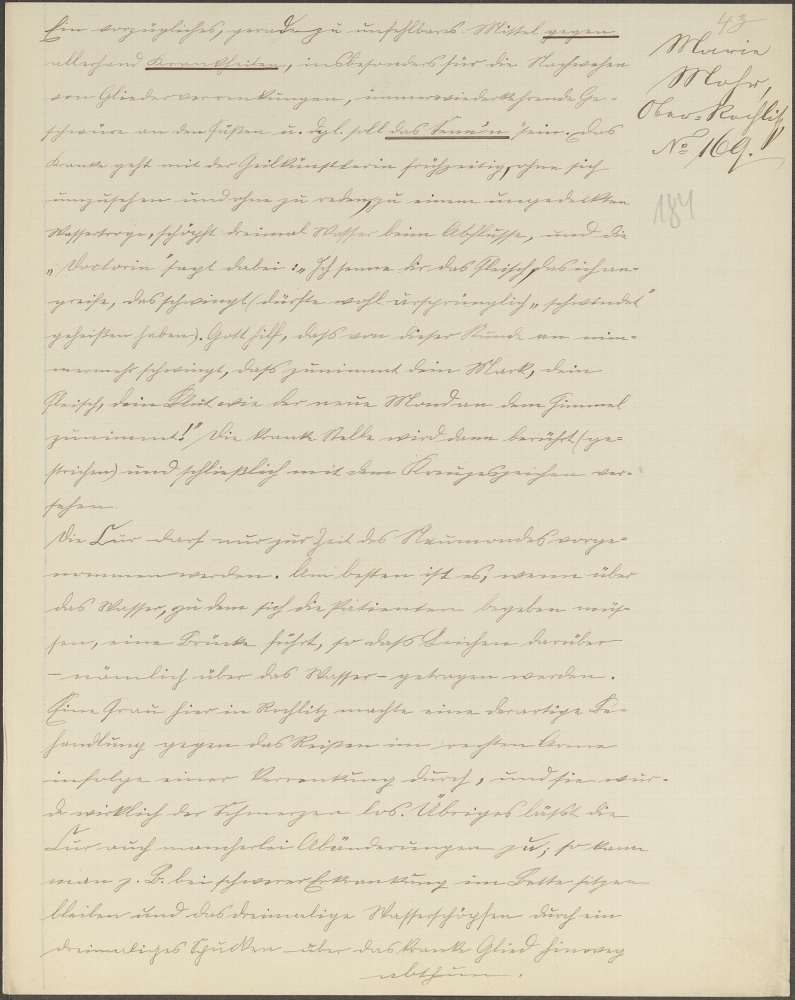 43
Marie
Mohr,
Ober-Rochlitz
No 169.
184
Ein vorzügliches, geradezu unfehlbares Mittel gegen
allerhand Krankheiten, insbesonders für die Nachwehen
von Gliederverrenkungen, immerwiederkehrende Ge-
schwüre an den Füßen u. dgl. soll das sein. Das
Kranke geht mit der Heilkünstlerin frühzeitig, ohne sich
umzusehen und ohne zu reden, zu einem ungedeckten
Wassertroge, schöpft dreimal Wasser beim Abflusse, und die
„Doctorin" sagt dabei: „Ich dir das Fleisch, das ich an-
greife, das schwingt (dürfte wohl ursprünglich „schwindet"
geheißen haben). Gott hilf, daß von dieser Stunde an nim-
mermehr schwingt, daß zunimmt dein Mark, dein
Fleisch, dein Blut wie der neue Mond an dem Himmel
zunimmt!" Die kranke Stelle wird dann berührt (ge-
strichen) und schließlich mit dem Kreuzeszeichen ver-
sehen.
Die Cur darf nur zur Zeit des Neumondes vorge-
nommen werden. Am besten ist es, wenn über
das Wasser, zu dem sich die Patienten begeben müs-
sen, eine Brücke führt, so daß Leichen darüber
- nämlich über das Wasser - getragen werden.
Eine Frau hier in Rochlitz machte eine derartige Be-
handlung gegen das Reißen im rechten Arme
infolge einer Verrenkung durch, und sie wur-
de wirklich der Schmerzen los. Übriges läßt die
Cur auch mancherlei Abänderungen zu; so kann
man z. B. bei schwerer Erkrankung im Bette sitzen
bleiben und das dreimalige Wasserschöpfen durch ein
dreimaliges Spucken über das kranke Glied hinweg
abthun.